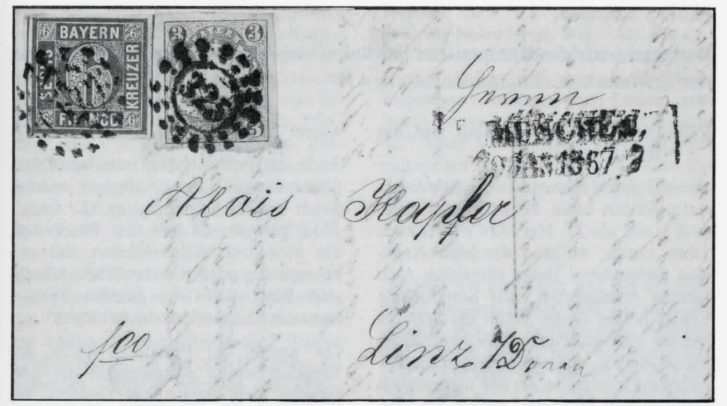 BAYERN
SECHS 6 KREUZER
FRANCO
3 3
3
Herrn
MÜNCHEN,
JAN 1867
Alois Kapfer
fco
Linz / Donau